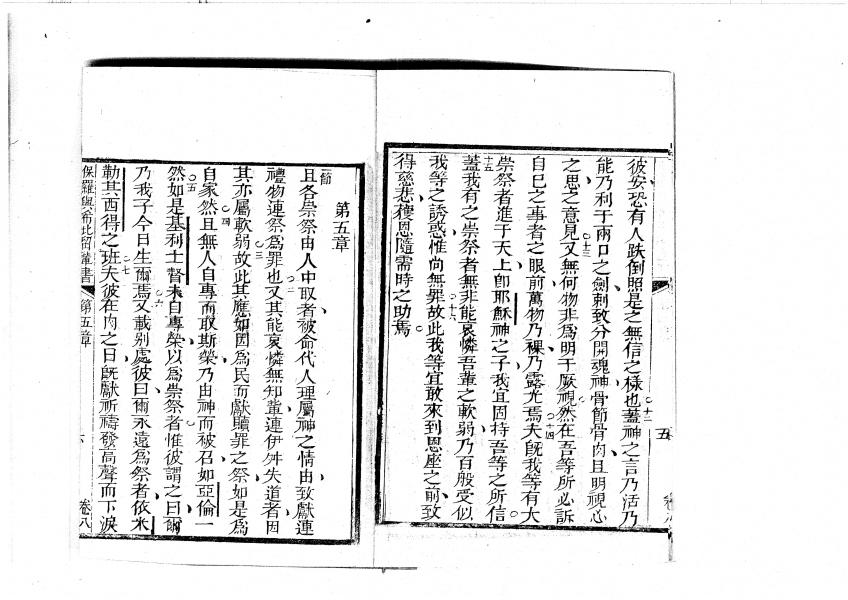 彼安恐有人跌倒照是之無信之樣也蓋神之言乃活乃
能乃利于兩口之劍刺致分開魂神骨節骨肉且明視心
之思之意見又無何物非爲明于厥視然在吾等所必訴
自己之事者之眼前萬物乃裸乃露光焉夫既我等有大
崇祭者進于天上卽耶穌神之子我宜固持吾等之所信
蓋我有之崇祭者無非能哀憐吾輩之軟弱乃百般受似
我等之誘惑惟尚無罪故此我等宜敢來到恩座之前致
得慈悲獲恩隨需時之助焉
十二
十三
十四
十五
十六
五
卷八
第五章
一節
且各崇祭由人中取者被命代人理屬神之情由致獻連
禮物連祭爲罪也又其能哀憐無知輩連伊舛失道者因
其亦屬軟弱故此其應如因爲民而獻贖罪之祭如是爲
自家然且無人自專而取斯榮乃由神而被召如亞倫一
然如是基利士督未自專榮以爲崇祭者惟彼謂之曰爾
乃我子今日生爾焉又載别處彼曰爾永遠爲祭者依米
勒其西得之班夫彼在肉之日既獻祈禱發高聲而下淚
二
三
四
五
六
七
保羅與希比留輩書
第五章
六
卷八